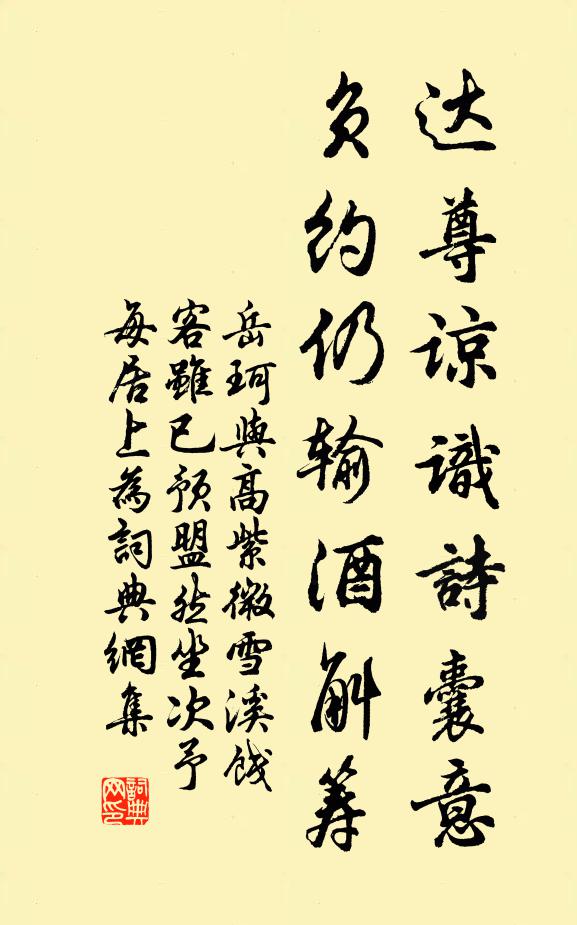 达尊谅識詩囊意
负约仍输酒斛筹
岳珂與高紫微雪溪餞
客雖已预盟然坐次予
每居上為詞典網集
詞典
网印